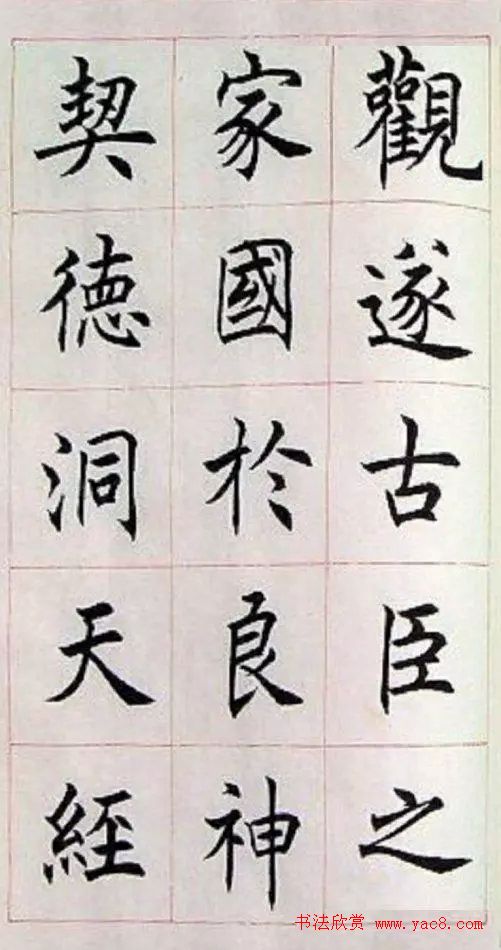 觀遂古臣之
家國於良神
契德洞天經
书法欣赏 www.yac8.com